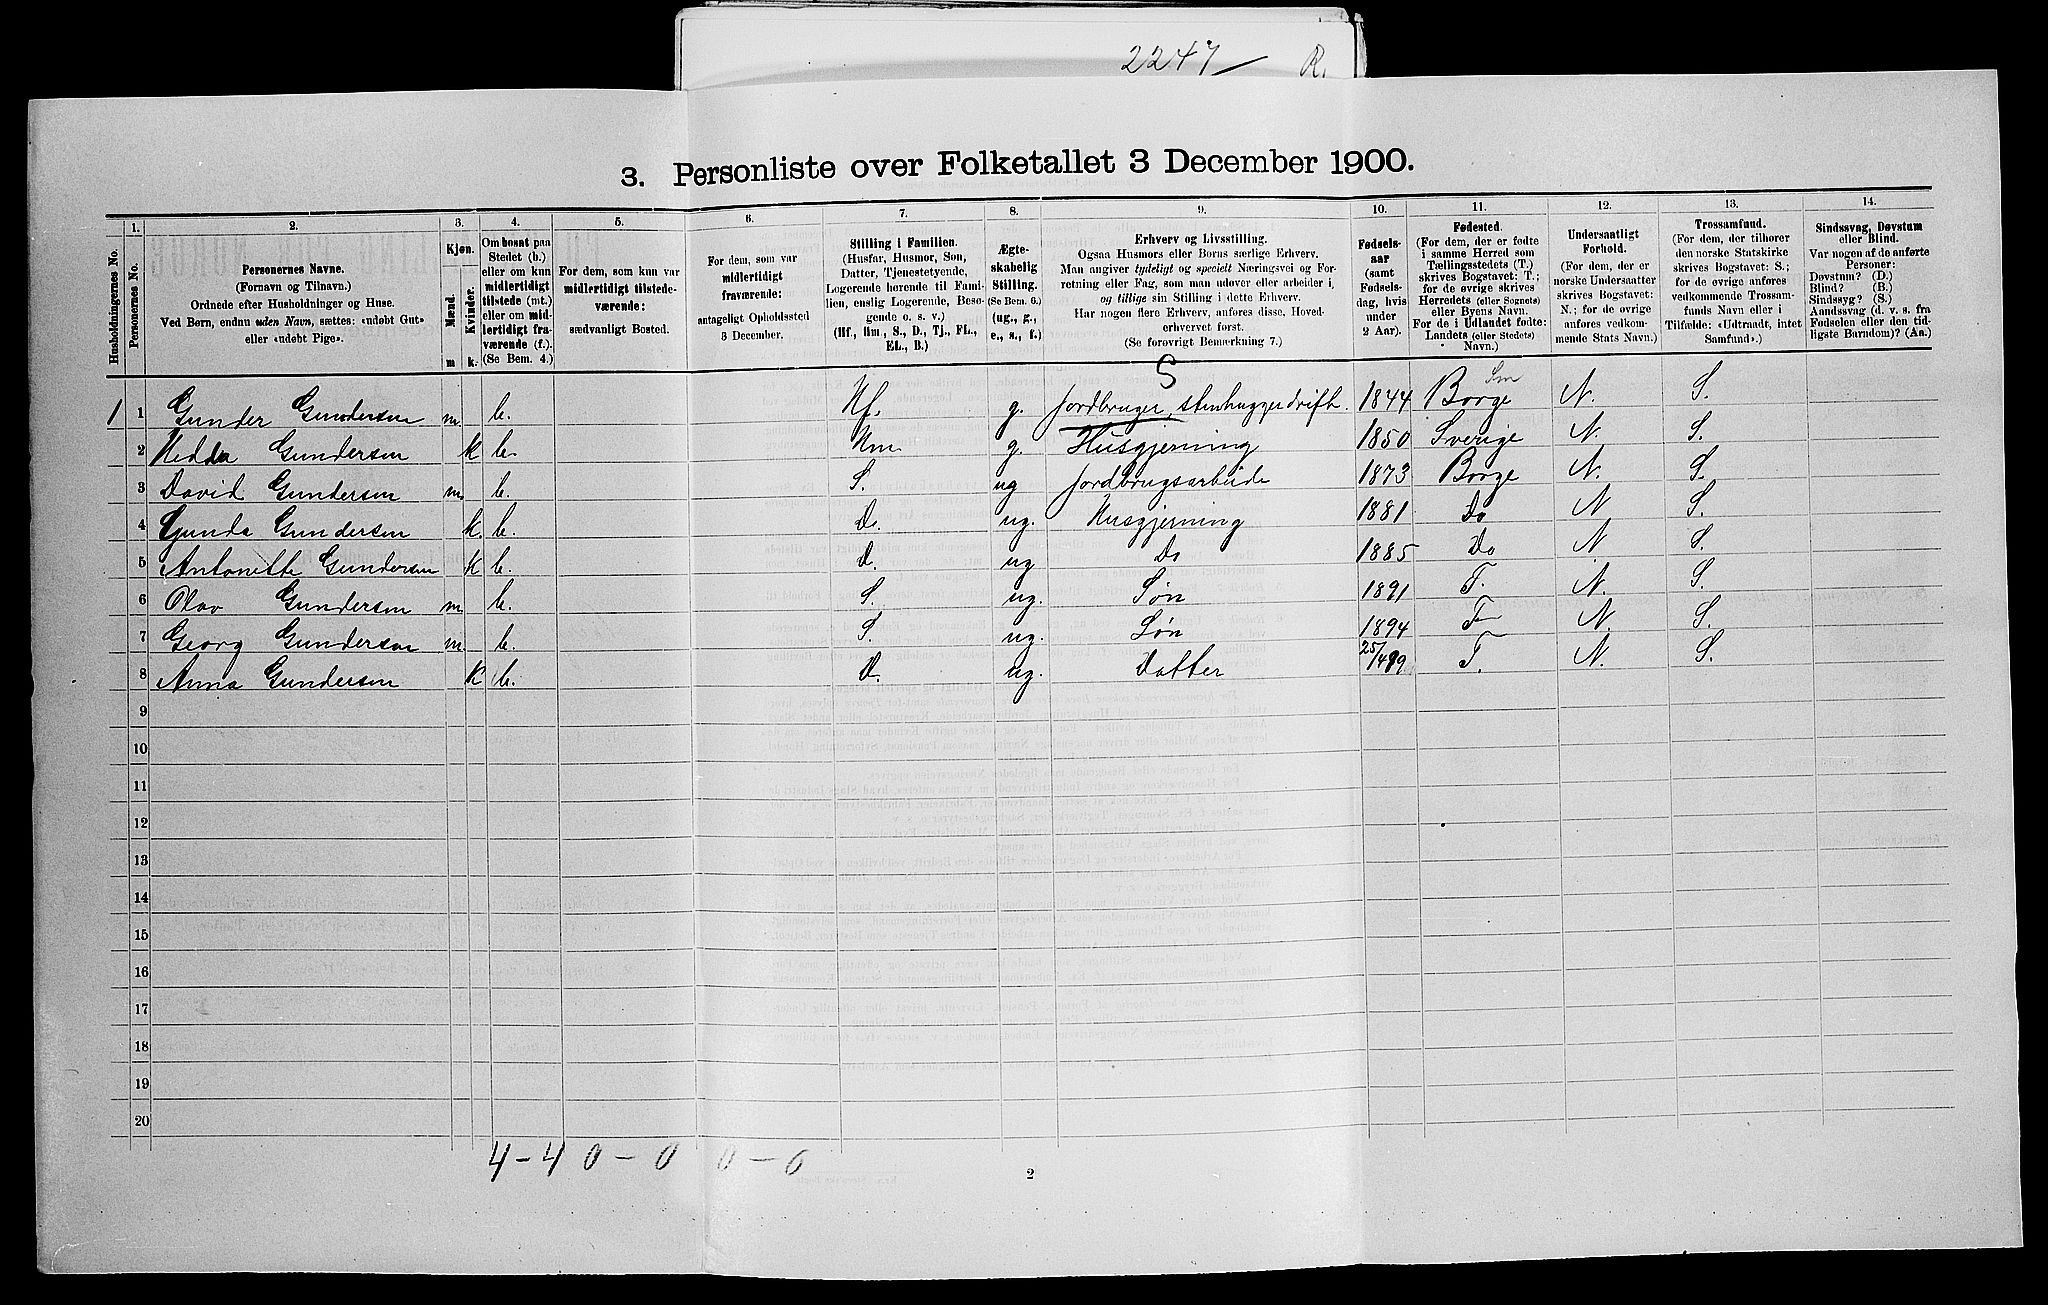 2247/ R.
3. Personliste over Folketallet 3 December 1900.
Husholdningernes No.
1. Personernes No.
2. Personernes Navne. (Fornavn og Tilnavn.) Ordnede efter Husholdninger og Huse. Ved Børn, endnu uden Navn, sættes: «udøbt Gut» eller «udøbt Pige».
3. Kjøn. Mænd. m Kvinder. k.
4. Om bosat paa Stedet (b.) eller om kun midlertidigt tilstede (mt.) eller om midlertidigt fraværende (f.). (Se Bem. 4.)
5. For dem, som kun var midlertidigt tilstedeværende: sædvanligt Bosted.
6. For dem, som var midlertidigt fraværende: antageligt Opholdssted 3 December.
7. Stilling i Familien. (Husfar, Husmor, Søn, Datter, Tjenestetyende, Logerende hørende til Familien, enslig Logerende, Besøgende o. s. v.) (Hf., Hm., S., D., Tj., FL., EL., B.)
8. Ægteskabelig Stilling. (Se Bem. 6.) (ug., g., e., s., f.)
9. Erhverv og Livsstilling. Ogsaa Husmors eller Børns særlige Erhverv. Man angiver tydeligt og specielt Næringsvei og Forretning eller Fag, som man udøver eller arbeider i, og tillige sin Stilling i dette Erhverv. Har nogen flere Erhverv, anføres disse, Hovederhvervet først. (Se forøvrigt Bemerkning 7.)
10. Fødselsaar (samt Fødselsdag, hvis under 2 Aar).
11. Fødested. (For dem, der er fødte i samme Herred som Tællingsstedets (T.) skrives Bogstavet: T.; for de øvrige skrives Herredets (eller Sognets) eller Byens Navn. For de i Udlandet fødte: Landets (eller Stedets) Navn.)
12. Undersaatligt Forhold. (For dem, der er norske Undersaatter skrives Bogstavet: N.; for de øvrige anføres vedkommende Stats Navn.)
13. Trossamfund. (For dem, der tilhører den norske Statskirke skrives Bogstavet: S.; for de øvrige anføres vedkommende Trossamfunds Navn eller i Tilfælde: «Udtraadt, intet Samfund».)
14. Sindssvag, Døvstum eller Blind. Var nogen af de anførte Personer: Døvstum? (D.) Blind? (B.) Sindssyg? (S.) Aandssvag (d. v. s. fra Fødselen eller den tidligste Barndom)? (Aa.)
S
Sm
1 1 Gunder Gundersen m. b. Hf. g. Jordbruger, stenhuggerdrift. 1844 Borge N. S.
2 Hedda Gundersen k b. Hm g. Husgjerning 1850 Sverige N. S.
3 David Gundersen m. b. S. ug Jordbrugsarbeide 1873 Borge N. S.
4 Gunda Gundersen k. b. D. ug. Husgjerning 1881 Do N S.
5 Antonette Gundersen k b. D. ug Do 1885 Do N S.
6 Olav Gundersen m. b. S. ug. Søn 1891 T. N. S.
7 Georg Gundersen m. b. S. ug. Søn 1894 T N. S.
8 Anna Gundersen k b. D. ug. Datter 25/4 99 T. N. S.
9
10
11
12
13
14
15
16
17
18
19
20
4-4 0-0 0-0
2